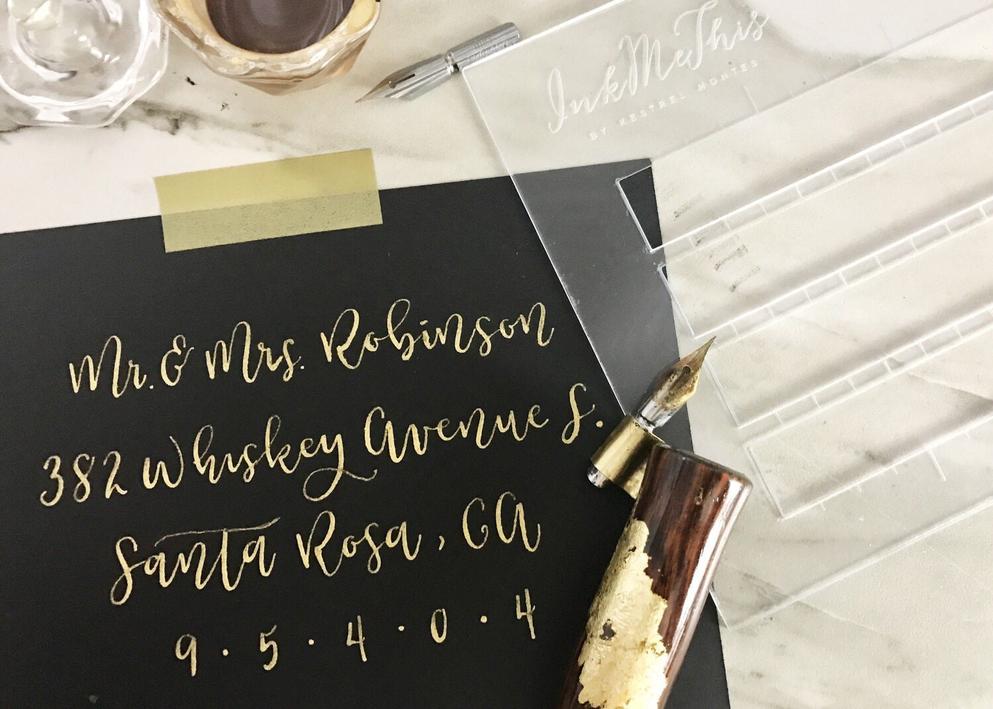 InkMeThis
BY KESTREL MONTES
Mr. & Mrs. Robinson
382 Whiskey Avenue S.
Santa Rosa, CA
9 · 5 · 4 · 0 · 4